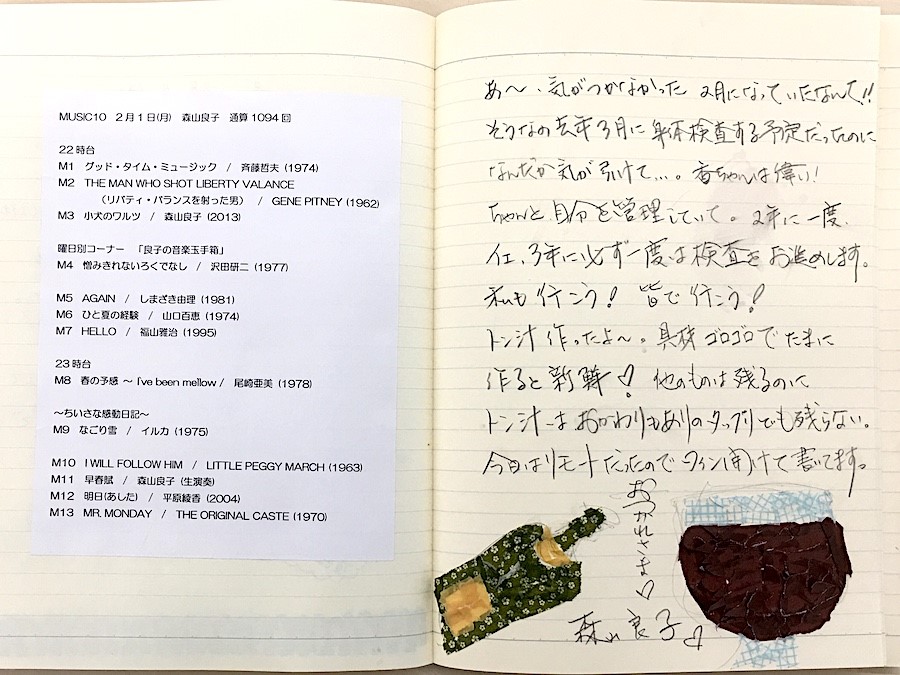 MUSIC10 2月1日(月) 森山良子 通算1094回
22時台
M1 グッド・タイム・ミュージック / 斉藤哲夫 (1974)
M2 THE MAN WHO SHOT LIBERTY VALANCE
(リバティ・バランスを射った男) / GENE PITNEY (1962)
M3 小犬のワルツ / 森山良子 (2013)
曜日別コーナー 「良子の音楽玉手箱」
M4 憎みきれないろくでなし / 沢田研二 (1977)
M5 AGAIN / しまざき由理 (1981)
M6 ひと夏の経験 / 山口百恵 (1974)
M7 HELLO / 福山雅治 (1995)
23時台
M8 春の予感 ~ I've been mellow / 尾崎亜美 (1978)
~ちいさな感動日記~
M9 なごり雪 / イルカ (1975)
M10 I WILL FOLLOW HIM / LITTLE PEGGY MARCH (1963)
M11 早春賦 / 森山良子 (生演奏)
M12 明日(あした) / 平原綾香 (2004)
M13 MR. MONDAY / THE ORIGINAL CASTE (1970)
あ〜、気がつかなかった 2月になっていたなんて!!
そうなの去年3月に身体検査する予定だったのに
なんだか気が引けて…。杏ちゃんは偉い!
ちゃんと自分を管理していて。2年に一度、
イエ、3年に必ず一度は検査をお進めします。
私も行こう! 皆で行こう!
トン汁作ったよ〜。具材ゴロゴロでたまに
作ると新鮮♡ 他のものは残るのに
トン汁はおかわりもありのタップリでも残らない。
今日はリモートだったのでワイン開けて書いてます。
おつかれさま♡
森山良子